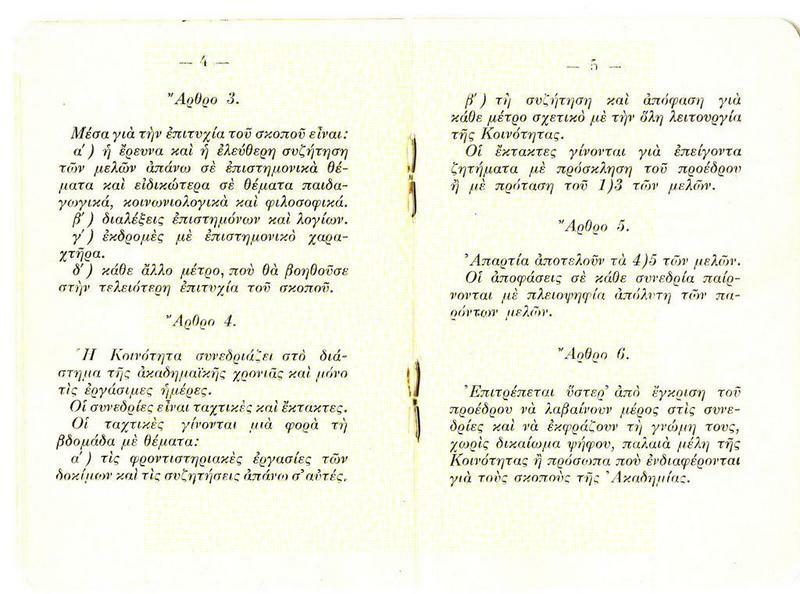 — 4 —
Ἄρθρο 3.
Μέσα γιὰ τὴν ἐπιτυχία τοῦ σκοποῦ εἶναι:
α΄) ἡ ἔρευνα καὶ ἡ ἐλεύθερη συζήτηση
τῶν μελῶν ἀπάνω σὲ ἐπιστημονικὰ θέ-
ματα καὶ εἰδικώτερα σὲ θέματα παιδα-
γωγικά, κοινωνιολογικὰ καὶ φιλοσοφικά.
β΄) διαλέξεις ἐπιστημόνων καὶ λογίων.
γ΄) ἐκδρομὲς μὲ ἐπιστημονικὸ χαρα-
χτῆρα.
δ΄) κάθε ἄλλο μέτρο, ποὺ θὰ βοηθοῦσε
στὴν τελειότερη ἐπιτυχία τοῦ σκοποῦ.
Ἄρθρο 4.
Ἡ Κοινότητα συνεδριάζει στὸ διά-
στημα τῆς ἀκαδημαϊκῆς χρονιᾶς καὶ μόνο
τὶς ἐργάσιμες ἡμέρες.
Οἱ συνεδρίες εἶναι ταχτικὲς καὶ ἔκτακτες.
Οἱ ταχτικὲς γίνονται μιὰ φορὰ τὴ
βδομάδα μὲ θέματα:
α΄) τὶς φροντιστηριακὲς ἐργασίες τῶν
δοκίμων καὶ τὶς συζητήσεις ἀπάνω σ' αὐτές,
— 5 —
β΄) τὴ συζήτηση καὶ ἀπόφαση γιὰ
κάθε μέτρο σχετικὸ μὲ τὴν ὅλη λειτουργία
τῆς Κοινότητας.
Οἱ ἔκτακτες γίνονται γιὰ ἐπείγοντα
ζητήματα μὲ πρόσκληση τοῦ προέδρου
ἢ μὲ πρόταση τοῦ 1)3 τῶν μελῶν.
Ἄρθρο 5.
Ἀπαρτία ἀποτελοῦν τὰ 4)5 τῶν μελῶν.
Οἱ ἀποφάσεις σὲ κάθε συνεδρία παίρ-
νονται μὲ πλειοψηφία ἀπόλυτη τῶν πα-
ρόντων μελῶν.
Ἄρθρο 6.
Ἐπιτρέπεται ὕστερ' ἀπὸ ἔγκριση τοῦ
προέδρου νὰ λαβαίνουν μέρος στὶς συνε-
δρίες καὶ νὰ ἐκφράζουν τὴ γνώμη τους,
χωρὶς δικαίωμα ψήφου, παλαιὰ μέλη τῆς
Κοινότητας ἢ πρόσωπα ποὺ ἐνδιαφέρονται
γιὰ τοὺς σκοποὺς τῆς Ἀκαδημίας.